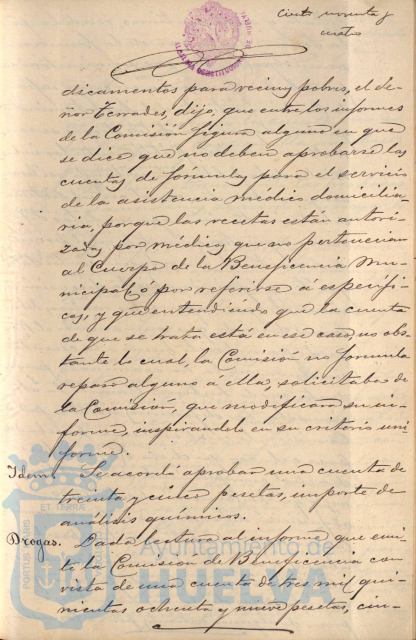 Ciento noventa y
cuatro
ALCALDIA CONSTITUCIONAL
dicamentos para vecinos pobres, el se-
ñor Terrades, dijo, que entre los informes
de la Comisión figura alguno en que
se dice que no deben aprobarse las
cuentas de fórmulas para el servicio
de la asistencia médico domicilia-
ria, porque las recetas están autori-
zadas por médicos que no pertenecian
al Cuerpo de la Beneficencia Mu-
nicipal, ó por referirse á específi-
cos, y que entendiendo que la cuenta
de que se trata está en ese caso, no obs-
tante lo cual, la Comisión no formula
reparo alguno á ella, solicitaba de
la Comisión, que modificara su in-
forme, inspirandolo en su criterio uni-
forme.
Idem. Se acordó aprobar una cuenta de
treinta y cinco pesetas, importe de
análisis químicos.
Drogas. Dada lectura al informe que emi-
te la Comisión de Beneficencia con
vista de una cuenta de tres mil qui-
nientas ochenta y nueve pesetas, cin-
Ayuntamiento de
HUELVA
PORTUS MARIS
ET TERRAE